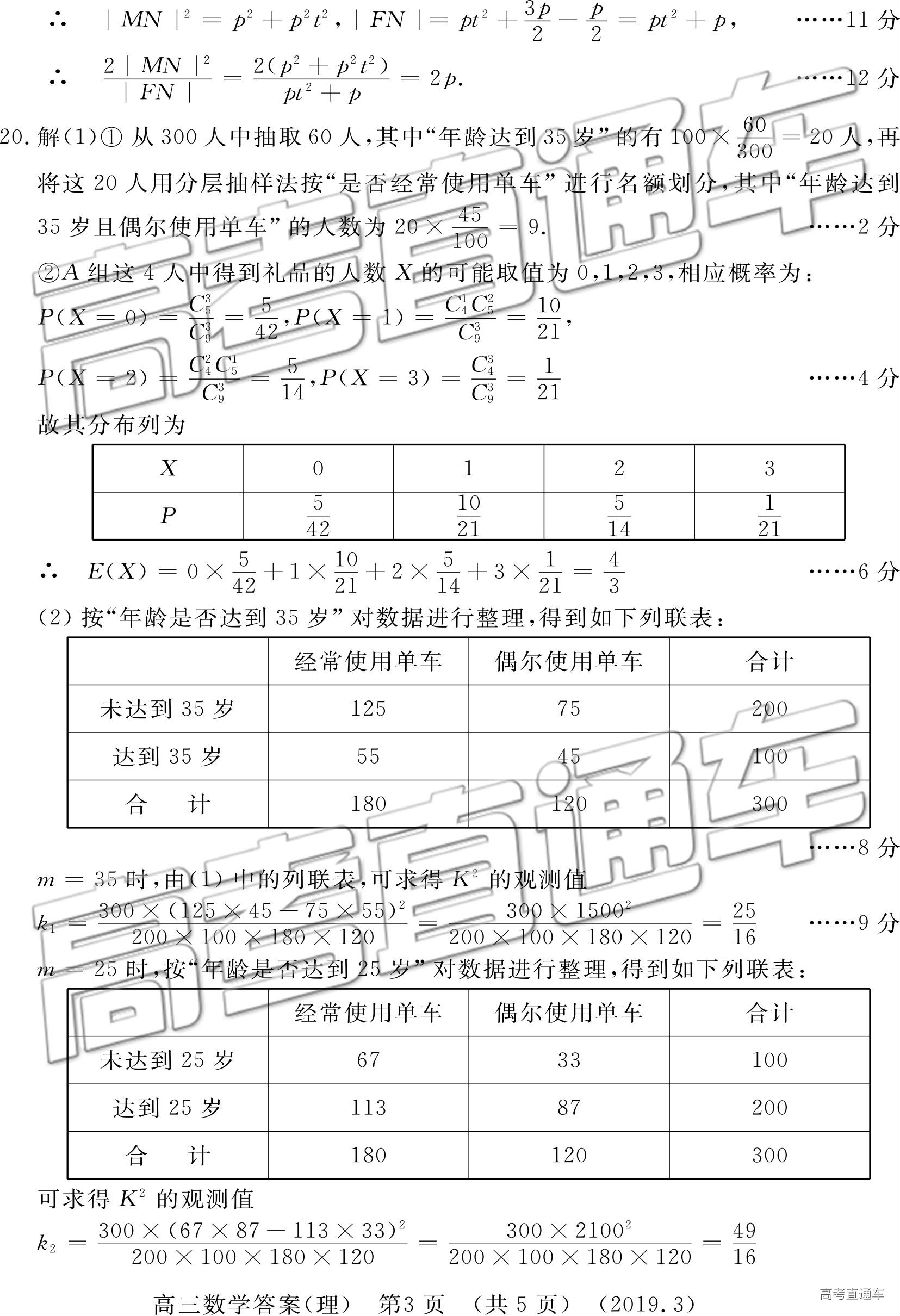 ∴ |MN|² = p² + p²t², |FN| = pt² + 3p/2 − p/2 = pt² + p, ……11分
∴ 2|MN|²/|FN| = 2(p² + p²t²)/(pt² + p) = 2p. ……12分
20. 解(1)① 从300人中抽取60人,其中“年龄达到35岁”的有100×60/300 = 20人,再
将这20人用分层抽样法按“是否经常使用单车”进行名额划分,其中“年龄达到
35岁且偶尔使用单车”的人数为20×45/100 = 9. ……2分
②A组这4人中得到礼品的人数X的可能取值为0,1,2,3,相应概率为:
P(X = 0) = C₅³/C₉³ = 5/42, P(X = 1) = C₄¹C₅²/C₉³ = 10/21,
P(X = 2) = C₄²C₅¹/C₉³ = 5/14, P(X = 3) = C₄³/C₉³ = 1/21 ……4分
故其分布列为
X 0 1 2 3
P 5/42 10/21 5/14 1/21
∴ E(X) = 0×5/42 + 1×10/21 + 2×5/14 + 3×1/21 = 4/3 ……6分
(2) 按“年龄是否达到35岁”对数据进行整理,得到如下列联表:
经常使用单车 偶尔使用单车 合计
未达到35岁 125 75 200
达到35岁 55 45 100
合 计 180 120 300
……8分
m = 35时,由(1)中的列联表,可求得K²的观测值
k₁ = 300×(125×45−75×55)²/(200×100×180×120) = 300×1500²/(200×100×180×120) = 25/16 ……9分
m = 25时,按“年龄是否达到25岁”对数据进行整理,得到如下列联表:
经常使用单车 偶尔使用单车 合计
未达到25岁 67 33 100
达到25岁 113 87 200
合 计 180 120 300
可求得K²的观测值
k₂ = 300×(67×87−113×33)²/(200×100×180×120) = 300×2100²/(200×100×180×120) = 49/16
高三数学答案(理) 第3页 (共5页) (2019.3)
高考直通车
高考直通车
高考直通车